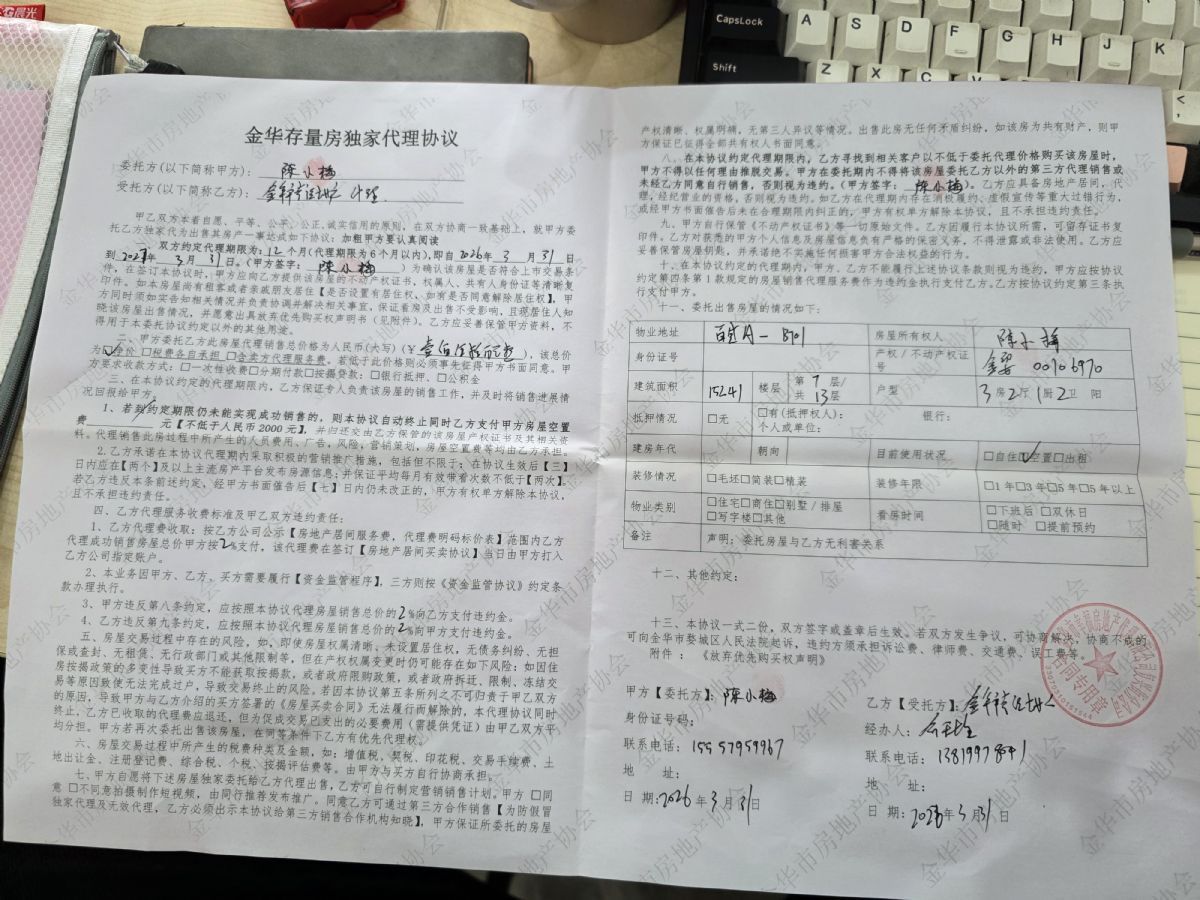 晨光
CapsLock
A
S
D
F
G
H
J
K
Shift
Z
X
C
金华存量房独家代理协议
委托方(以下简称甲方)： 陈小梅
受托方(以下简称乙方)：
甲乙双方本着自愿、平等、公平、公正、诚实信用的原则，在双方协商一致基础上，就甲方委
托乙方独家代为出售其房产一事达成如下协议：加粗甲方要认真阅读
一、双方约定代理期限为：12个月(代理期限为6个月以内)，即自2026年 3 月 31 日
到2027年 3 月 31日。(甲方签字： 陈小梅 ）为确认该房屋是否符合上市交易条
件，在签订本协议时，甲方应向乙方提供该房屋的不动产权证书、权属人、共有人身份证等清晰复
印件。如本房屋尚有租客或者亲戚朋友居住【是否设置有居住权，如有是否同意解除居住权】，甲
方同时须如实告知相关情况并负责协调并解决相关事宜，保证看房及出售不受影响，且现居住人知
晓该房屋出售情况，并愿意出具放弃优先购买权声明书（见附件）。乙方应妥善保管甲方资料，不
得用于本委托协议约定以外的其他用途。
二、甲方委托乙方此房屋代理销售总价格为人民币(大写)（¥ ），该总价
为☑净价 □税费各自承担 □含卖方代理服务费。若低于此价格则必须事先征得甲方书面同意。甲
方要求收款方式：□一次性收费□分期付款□按揭贷款：□银行抵押、□公积金
三、在本协议约定的代理期限内，乙方保证专人负责该房屋的销售工作，并及时将销售进展情
况回报给甲方。
1、若到约定期限仍未能实现成功销售的，则本协议自动终止同时乙方支付甲方房屋空置
费 元【不低于人民币 2000 元】，并归还交由乙方保管的该房屋产权证书及其相关资
料。代理销售此房过程中所产生的人员费用、广告，风险，营销策划，房屋空置费等均由乙方承担。
2.乙方承诺在本协议代理期内采取积极的营销推广措施，包括但不限于：在协议生效后【三】
日内应在【两个】及以上主流房产平台发布房源信息；并保证平均每月有效带看次数不低于【两次】。
若乙方违反本条前述约定，经甲方书面催告后【七】日内仍未改正的，甲方有权单方解除本协议，
且不承担违约责任。
四、乙方代理服务收费标准及甲乙双方违约责任：
1、乙方代理费收取：按乙方公司公示【房地产居间服务费，代理费明码标价表】范围内乙方
代理成功销售房屋总价甲方按2%支付，该代理费在签订【房地产居间买卖协议】当日由甲方打入
乙方公司指定账户。
2、本业务因甲方、乙方、买方需要履行【资金监管程序】，三方则按《资金监管协议》约定条
款办理执行。
3、甲方违反第八条约定，应按照本协议代理房屋销售总价的2%向乙方支付违约金。
4、乙方违反第九条约定，应按照本协议代理房屋销售总价的2%向甲方支付违约金。
五、房屋交易过程中存在的风险，如，即使房屋权属清晰、未设置居住权，无债务纠纷、无担
保或查封、无租赁、无行政部门或其他限制等，但在产权权属变更时仍可能存在如下风险：如因住
房按揭政策的多变性导致买方不能获取按揭款，或者政府限购政策，或者政府拆迁、限制、冻结交
易等原因致使无法完成过户，导致交易终止的风险。若因本协议第五条所列之不可归责于甲乙双方
的原因，导致甲方与乙方介绍的买方签署的《房屋买卖合同》无法履行而解除的，本代理协议同时
终止，乙方已收取的代理费应退还，但为促成交易已支出的必要费用（需提供凭证）由甲乙双方平
均分担。甲方若再次委托出售该房屋，在同等条件下乙方有优先代理权。
六、房屋交易过程中所产生的税费种类及金额，如：增值税、契税、印花税、交易手续费、土
地出让金、注册登记费、综合税、个税、按揭评估费等。由甲方与买方自行协商承担。
七、甲方自愿将下述房屋独家委托给乙方代理出售，乙方可自行制定营销销售计划。甲方 □同
意 □不同意拍摄制作短视频，由同行推荐发布推广。同意乙方可通过第三方合作销售【为防假冒
独家代理及无效代理，乙方必须出示本协议给第三方销售合作机构知晓】，甲方保证所委托的房屋
产权清晰、权属明确，无第三人异议等情况。出售此房无任何矛盾纠纷，如该房为共有财产，则甲
方保证已征得全部共有权人书面同意。
八、在本协议约定代理期限内，乙方寻找到相关客户以不低于委托代理价格购买该房屋时，
甲方不得以任何理由推脱交易。甲方在委托期内不得将该房屋委托乙方以外的第三方代理销售或
未经乙方同意自行销售，否则视为违约。（甲方签字： 陈小梅 ）。乙方应具备房地产居间，代
理，经纪营业的资格，否则视为违约。如乙方在代理期内存在消极履约、虚假宣传等重大过错行为，
或经甲方书面催告后未在合理期限内纠正的，甲方有权单方解除本协议，且不承担违约责任。
九、甲方自行保管《不动产权证书》等一切原始文件。乙方因履行本协议所需，可留存证书复
印件。乙方对获悉的甲方个人信息及房屋信息负有严格的保密义务，不得泄露或非法使用。乙方应
妥善保管房屋钥匙，并承诺绝不实施任何损害甲方合法权益的行为。
十、在本协议约定的代理期内，甲方、乙方不能履行上述协议条款则视为违约，甲方应按协议
约定第四条第1款规定的房屋销售代理服务费作为违约金执行支付乙方。乙方按协议约定第三条执
行支付甲方。
十一、委托出售房屋的情况如下：
物业地址 房屋所有权人 陈小梅
身份证号 产权/不动产权证号 00706970
建筑面积 152.41 楼层 第 7 层/共 13层 户型 3 房2厅1厨2卫 阳
抵押情况 □无 □有(抵押权人)： 银行：
个人或单位：
建房年代 朝向 目前使用状况 □自住☑空置□出租
装修情况 □毛坯□简装□精装 装修年限 □1 年□3 年□5 年□5 年以上
物业类别 □住宅□商住□别墅 / 排屋 □写字楼□其他 看房时间 □下班后 □双休日 □随时 □提前预约
备注 声明：委托房屋与乙方无利害关系
十二、其他约定：
十三、本协议一式二份，双方签字或盖章后生效。若双方发生争议，可协商解决；协商不成的
可向金华市婺城区人民法院起诉，违约方须承担诉讼费、律师费、交通费、误工费等。
附件 ： 《放弃优先购买权声明》
甲方【委托方】： 陈小梅
身份证号码：
联系电话：15557959967
地 址：
日 期：2026 年 3 月 31日
乙方【受托方】：
经办人：
联系电话：13819978541
地 址：
日 期：2026年 3 月31日
合同专用章
金华市房地产协会